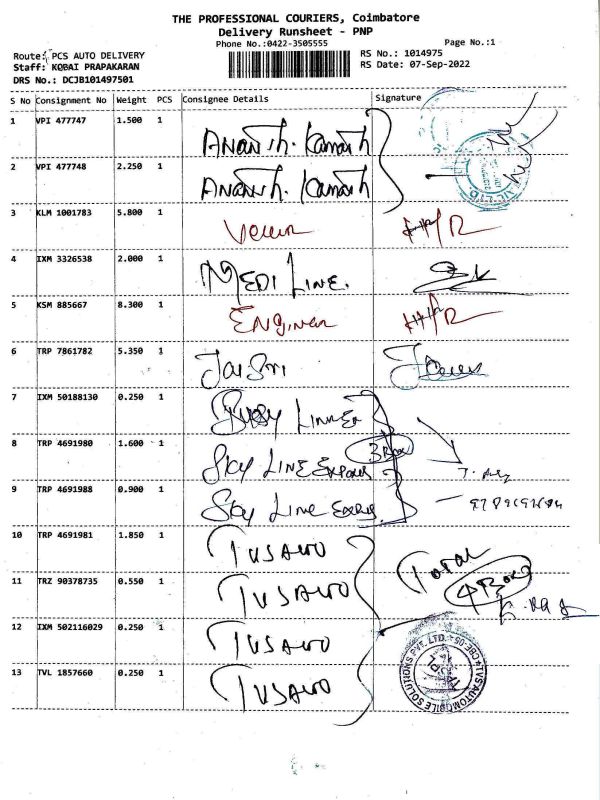 THE PROFESSIONAL COURIERS, Coimbatore
Delivery Runsheet - PNP
Phone No.:0422-3505555
Page No.:1
Route: PCS AUTO DELIVERY
RS No.: 1014975
Staff: KOBAI PRAPAKARAN
RS Date: 07-Sep-2022
DRS No.: DCJB101497501
S No Consignment No Weight PCS Consignee Details Signature
1 VPI 477747 1.500 1 Ananth. Kamath
2 VPI 477748 2.250 1 Ananth. Kamath
3 KLM 1001783 5.800 1
4 IXM 3326538 2.000 1 MEDI LINE.
5 KSM 885667 8.300 1
6 TRP 7861782 5.350 1 Jai Sri
7 IXM 50188130 0.250 1
8 TRP 4691980 1.600 1 SKY LINE
9 TRP 4691988 0.900 1 Sky Line
10 TRP 4691981 1.850 1 TVS Auto
11 TRZ 90378735 0.550 1 TVS Auto Total
12 IXM 502116029 0.250 1 TVS Auto
13 TVL 1857660 0.250 1 TVS Auto
TVS AUTOMOBILE SOLUTIONS PVT. LTD.